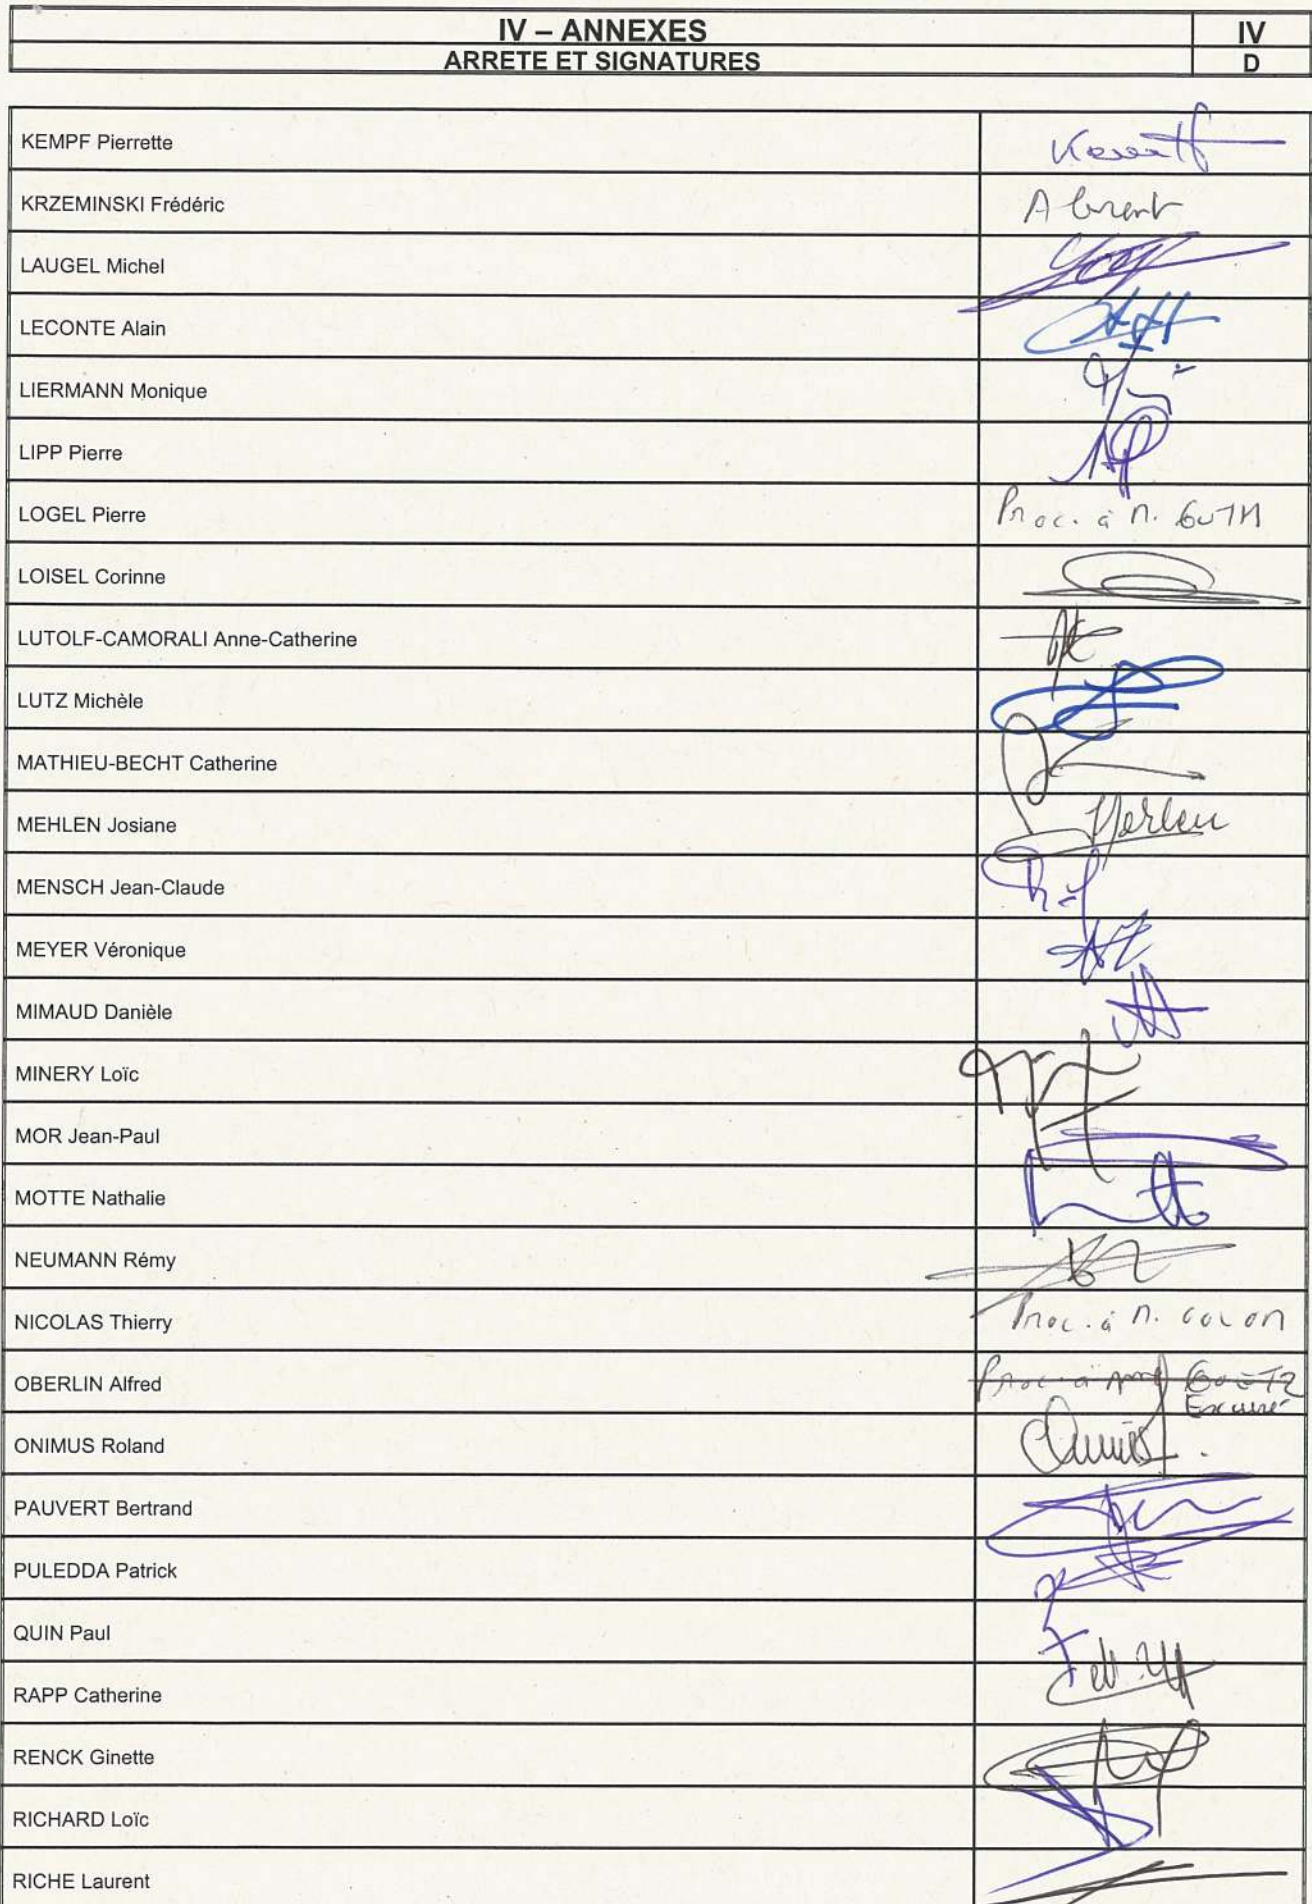 IV – ANNEXES
IV
ARRETE ET SIGNATURES
D
KEMPF Pierrette
KRZEMINSKI Frédéric
LAUGEL Michel
LECONTE Alain
LIERMANN Monique
LIPP Pierre
LOGEL Pierre Proc. à M. GUTH
LOISEL Corinne
LUTOLF-CAMORALI Anne-Catherine
LUTZ Michèle
MATHIEU-BECHT Catherine
MEHLEN Josiane
MENSCH Jean-Claude
MEYER Véronique
MIMAUD Danièle
MINERY Loïc
MOR Jean-Paul
MOTTE Nathalie
NEUMANN Rémy
NICOLAS Thierry Proc. à M. COLOM
OBERLIN Alfred Proc. à GOETZ
Excusé
ONIMUS Roland
PAUVERT Bertrand
PULEDDA Patrick
QUIN Paul
RAPP Catherine
RENCK Ginette
RICHARD Loïc
RICHE Laurent